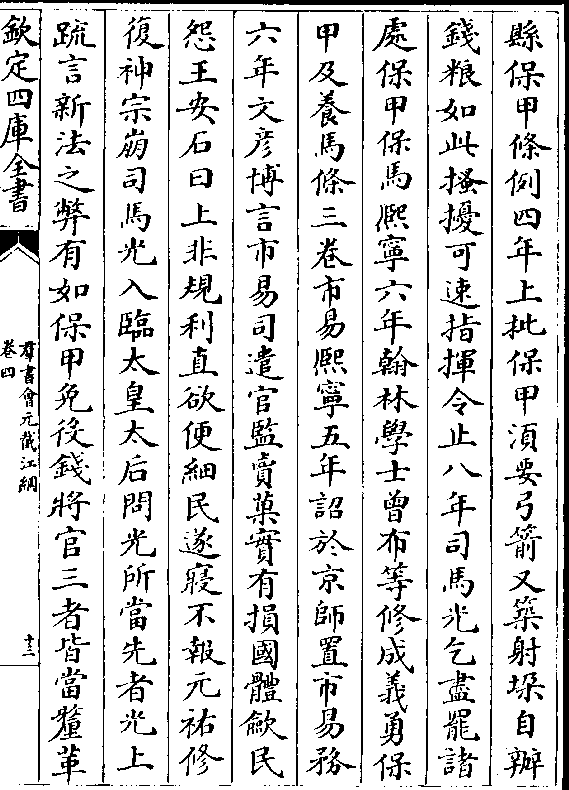 縣保甲條例四年上批保甲湏要弓箭又築射垛自辦
錢粮如此搔擾可速指揮令止八年司馬光乞盡罷諸
處保甲保馬熈寧六年翰林學士曾布等修成義勇保
甲及養馬條三卷市易熈寧五年詔於京師置市易務
六年文彦博言市易司遣官監賣菓實有損國體斂民
怨王安石曰上非規利直欲便細民遂寢不報元祐修
復神宗崩司馬光入臨太皇太后問光所當先者光上
疏言新法之弊有如保甲免役錢將官三者皆當釐革
欽定四庫全書
羣書會元截江網
卷四
十三